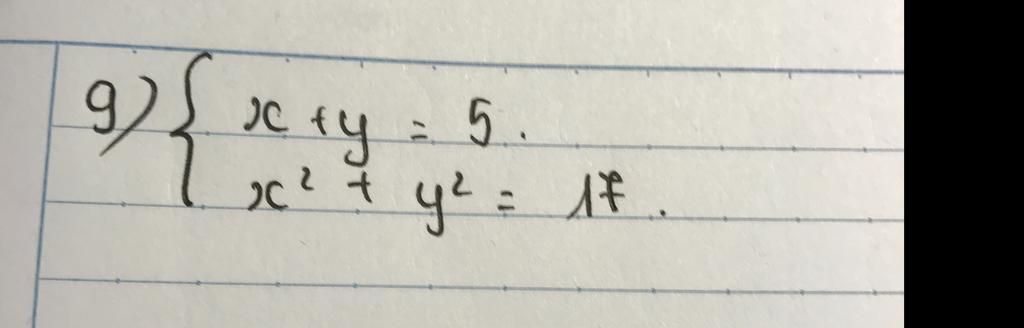 g) { x + y = 5.
x² + y² = 17.